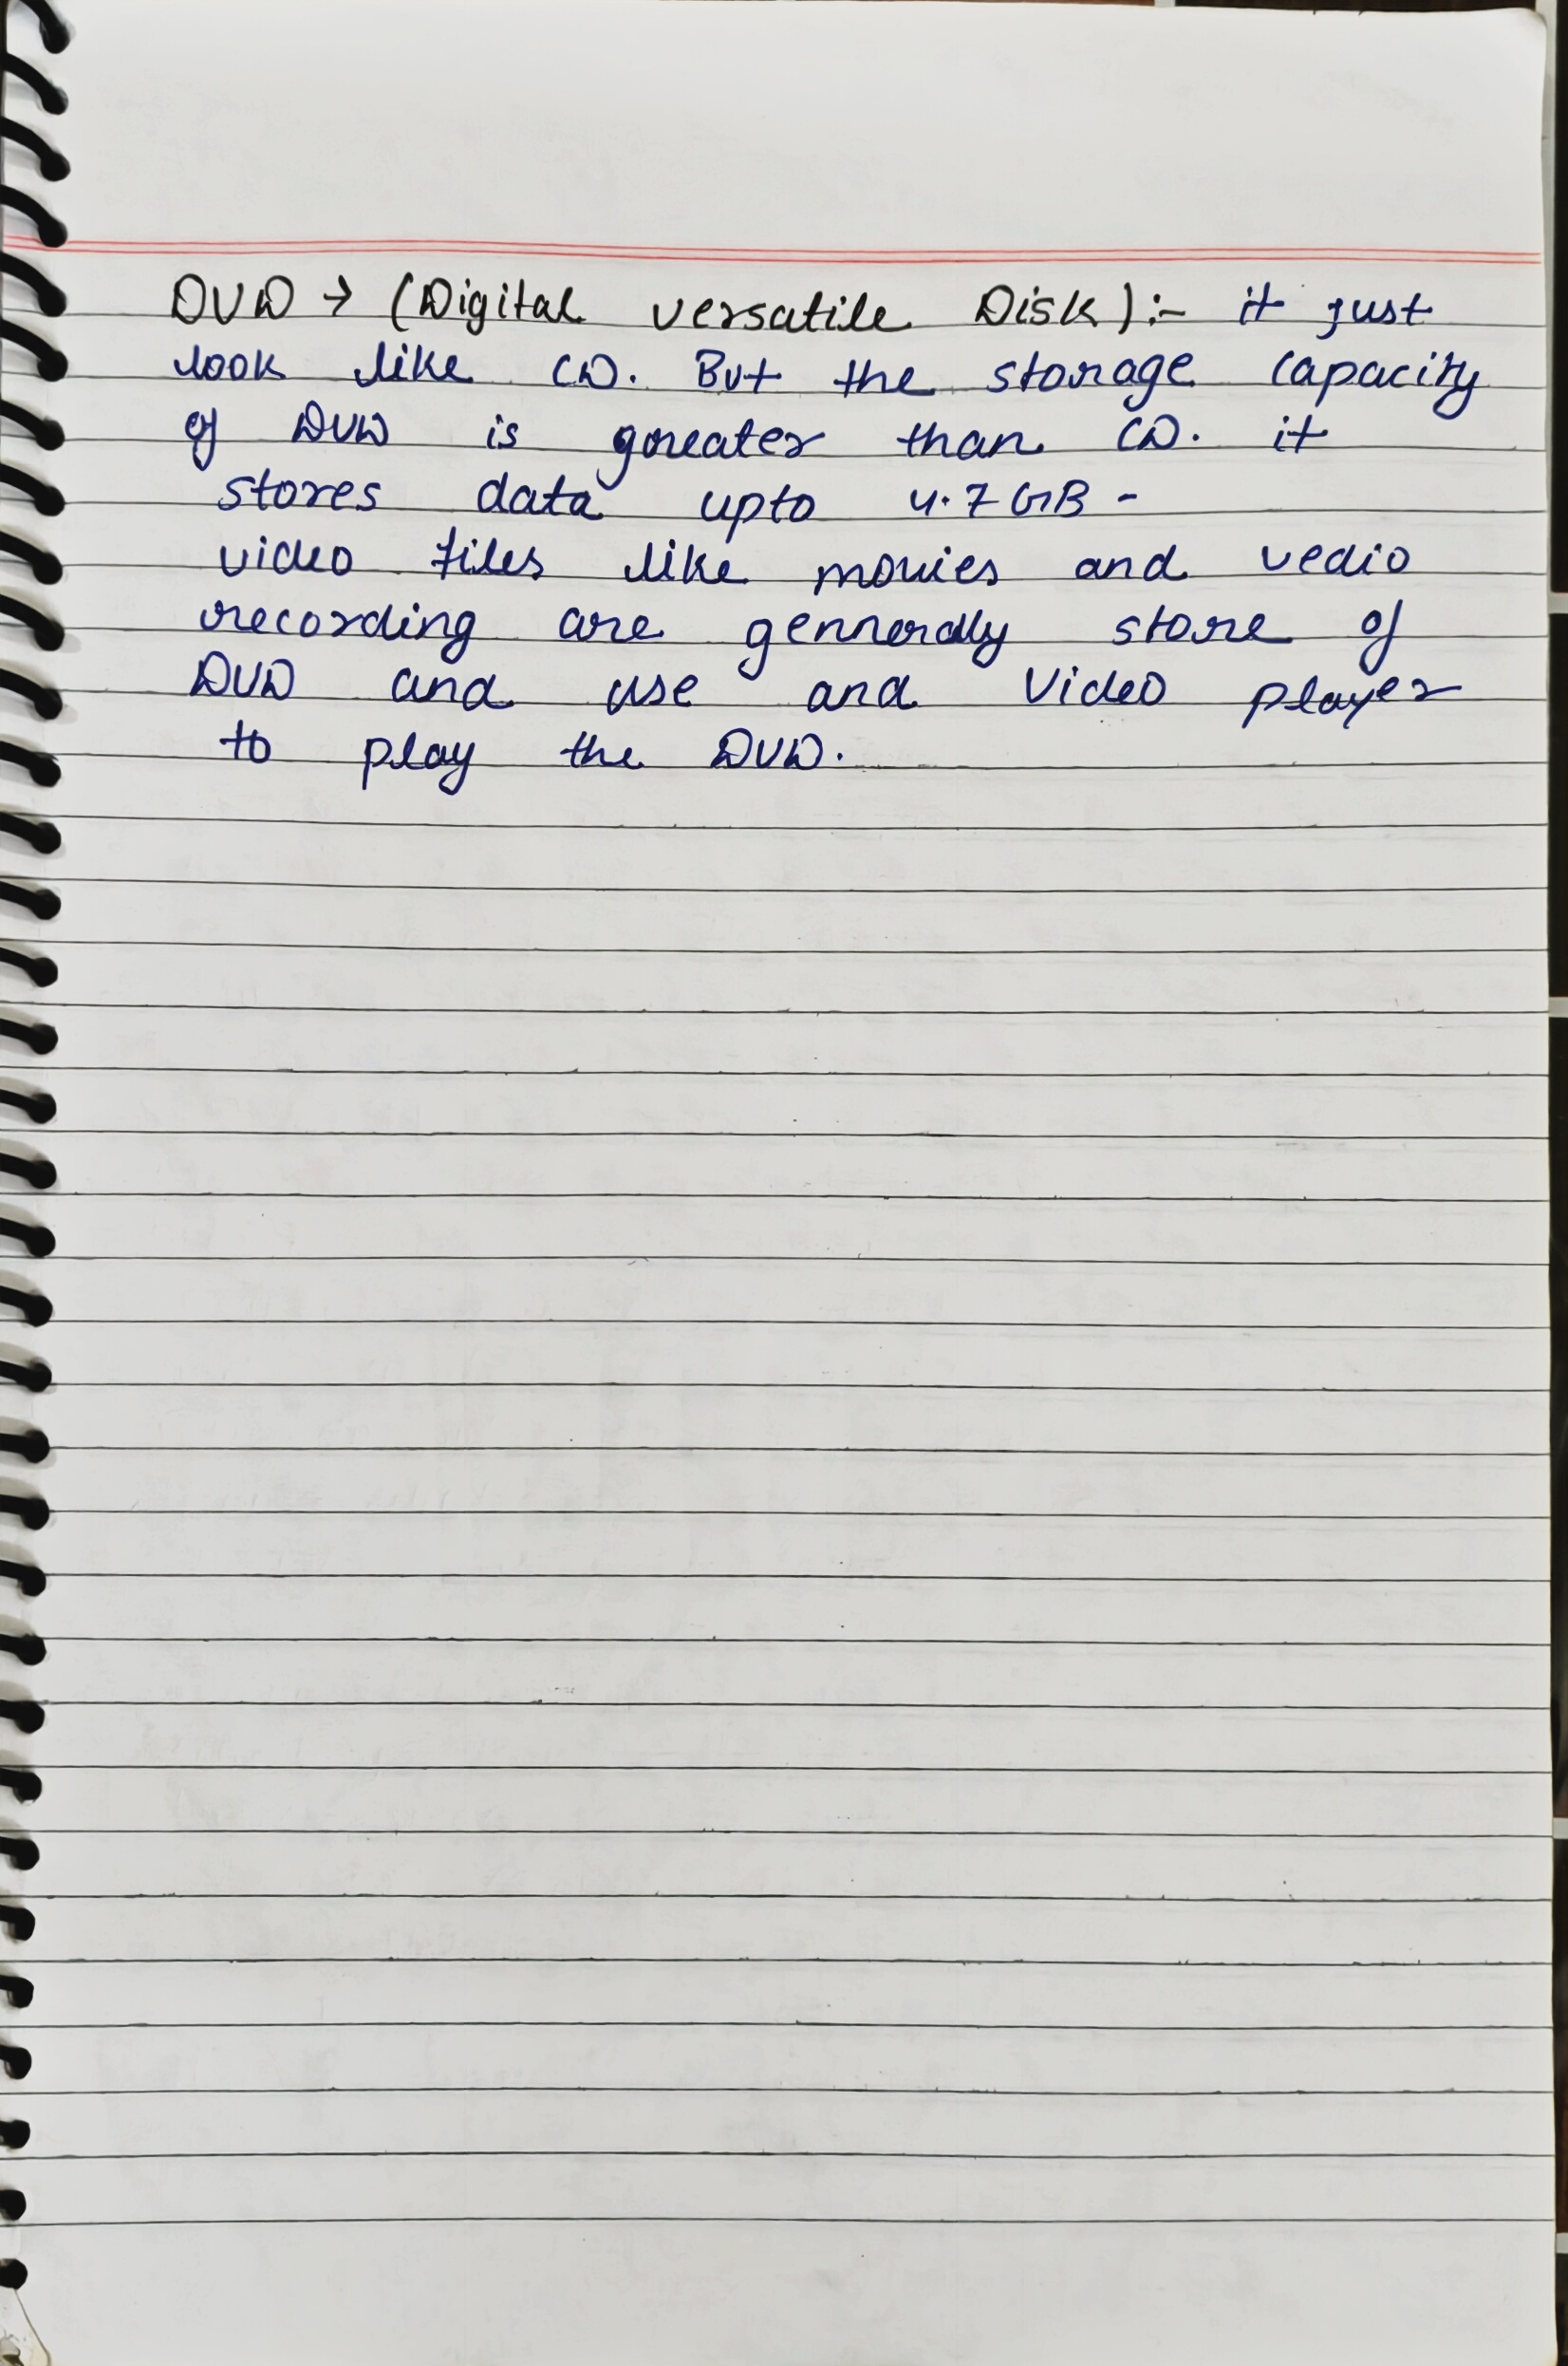 DVD → (Digital versatile Disk):- it just
look like CD. But the storage capacity
of DVD is greater than CD. it
stores data upto 4.7 GB -
video files like movies and vedio
recording are gennerally store of
DVD and use and Video player
to play the DVD.